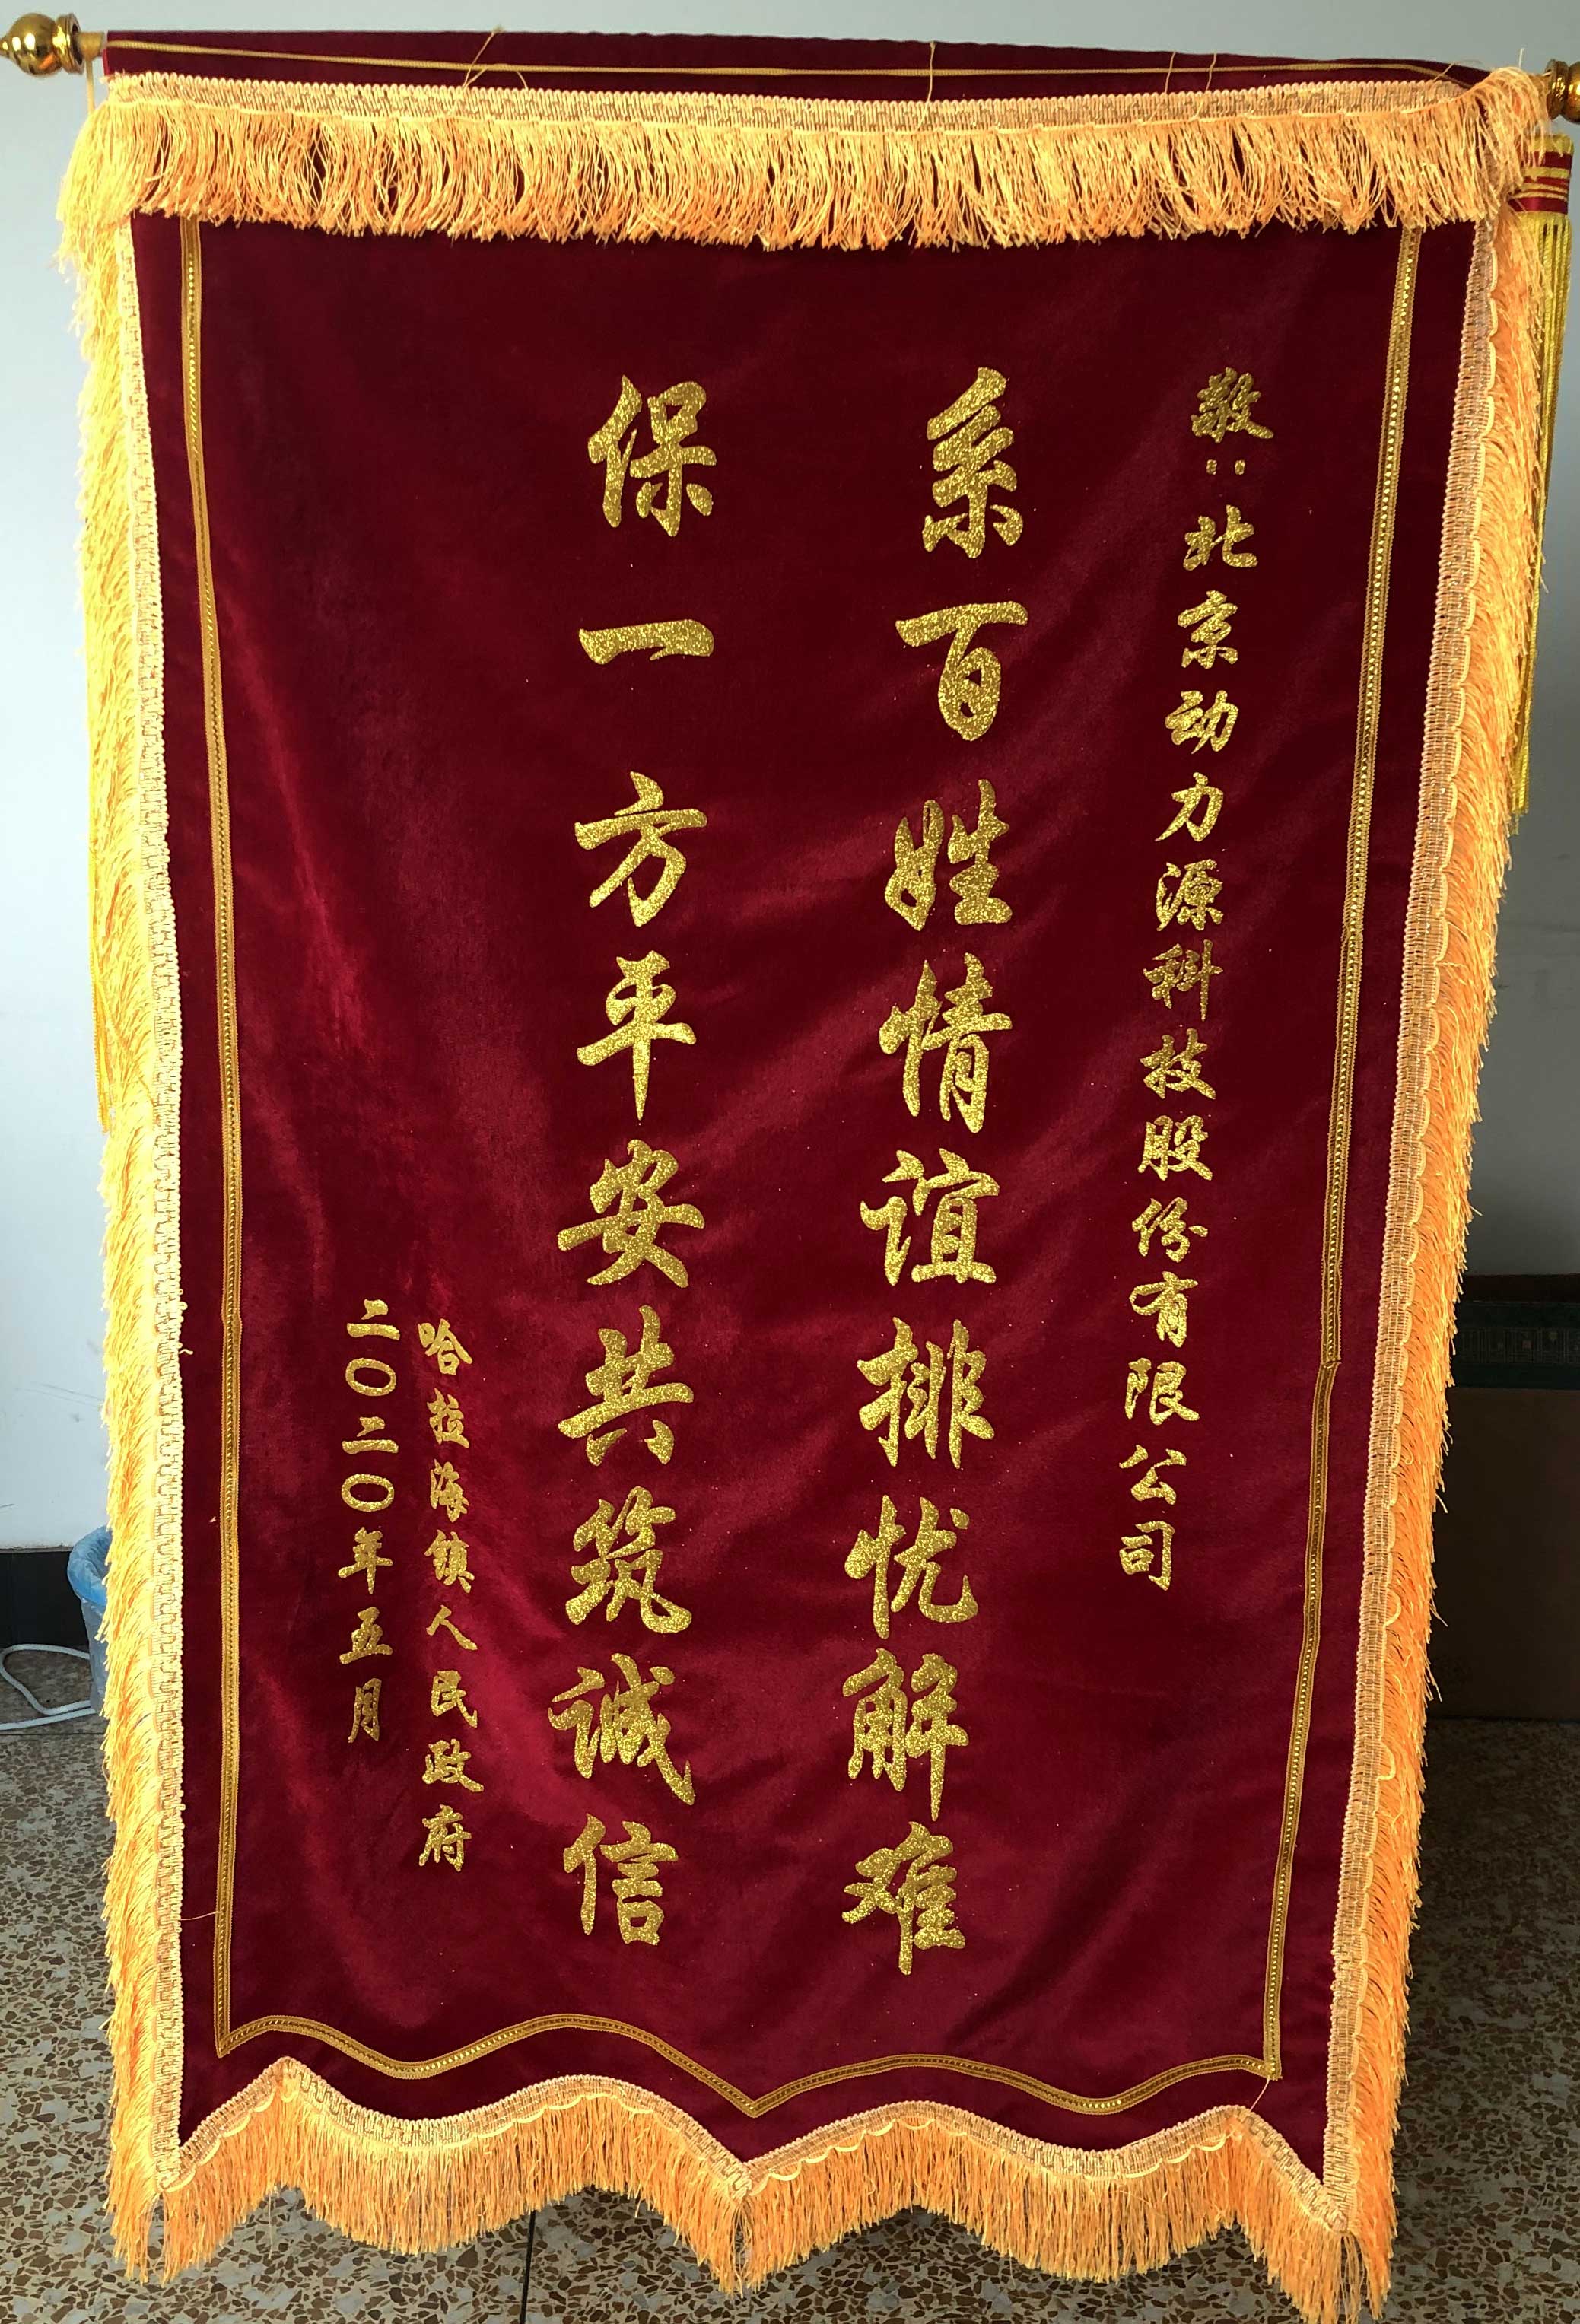 敬：北京动力源科技股份有限公司
系百姓情谊排忧解难
保一方平安共筑诚信
哈拉海镇人民政府
二〇二〇年五月